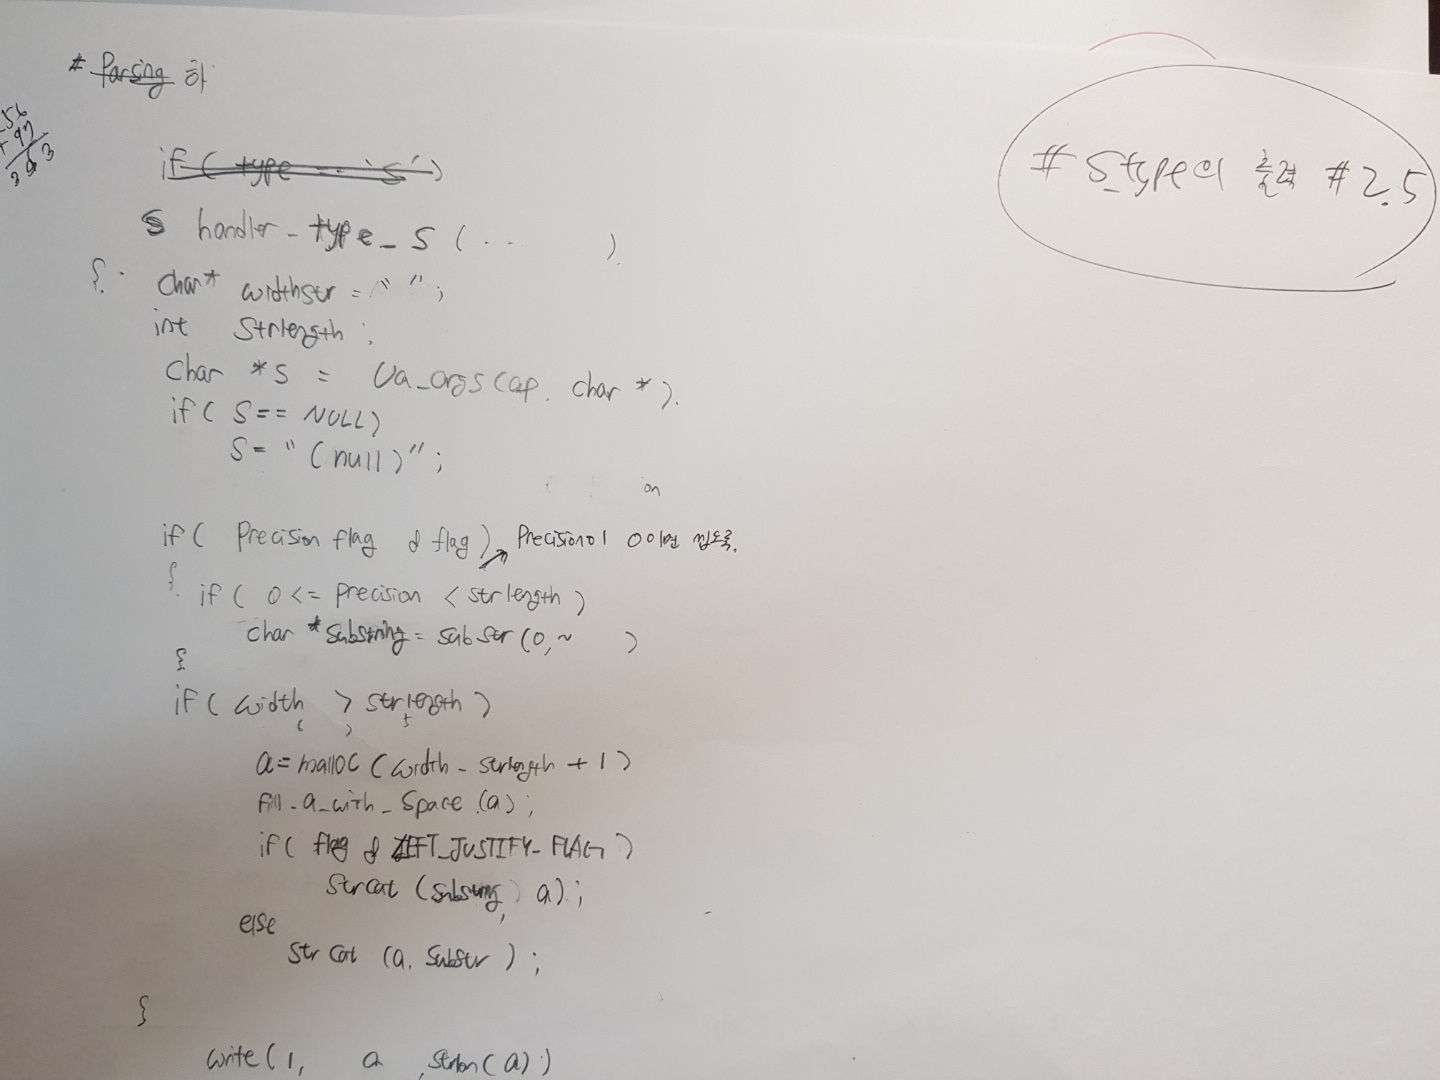 # Parsing 하
56
+ 97
if ( type -- 's')
# S_type의 출력 #2.5
S handler-type_s ( .. )
{ char* widthstr = " ";
int strlength;
char *s = va_args(ap, char *).
if( S== NULL)
S= "(null)";
on
if( Precision flag & flag) → Precision이 0이면
{ if ( 0 <= precision < strlength )
char *substring = substr(0,~ )
}
if( width > strlength )
a=malloc (width - strlength + 1)
fill_a_with_space (a);
if( flag & LEFT_JUSTIFY_FLAG )
strcat (substring, a);
else
strcat (a, substr );
}
write(1, a ,strlen(a))